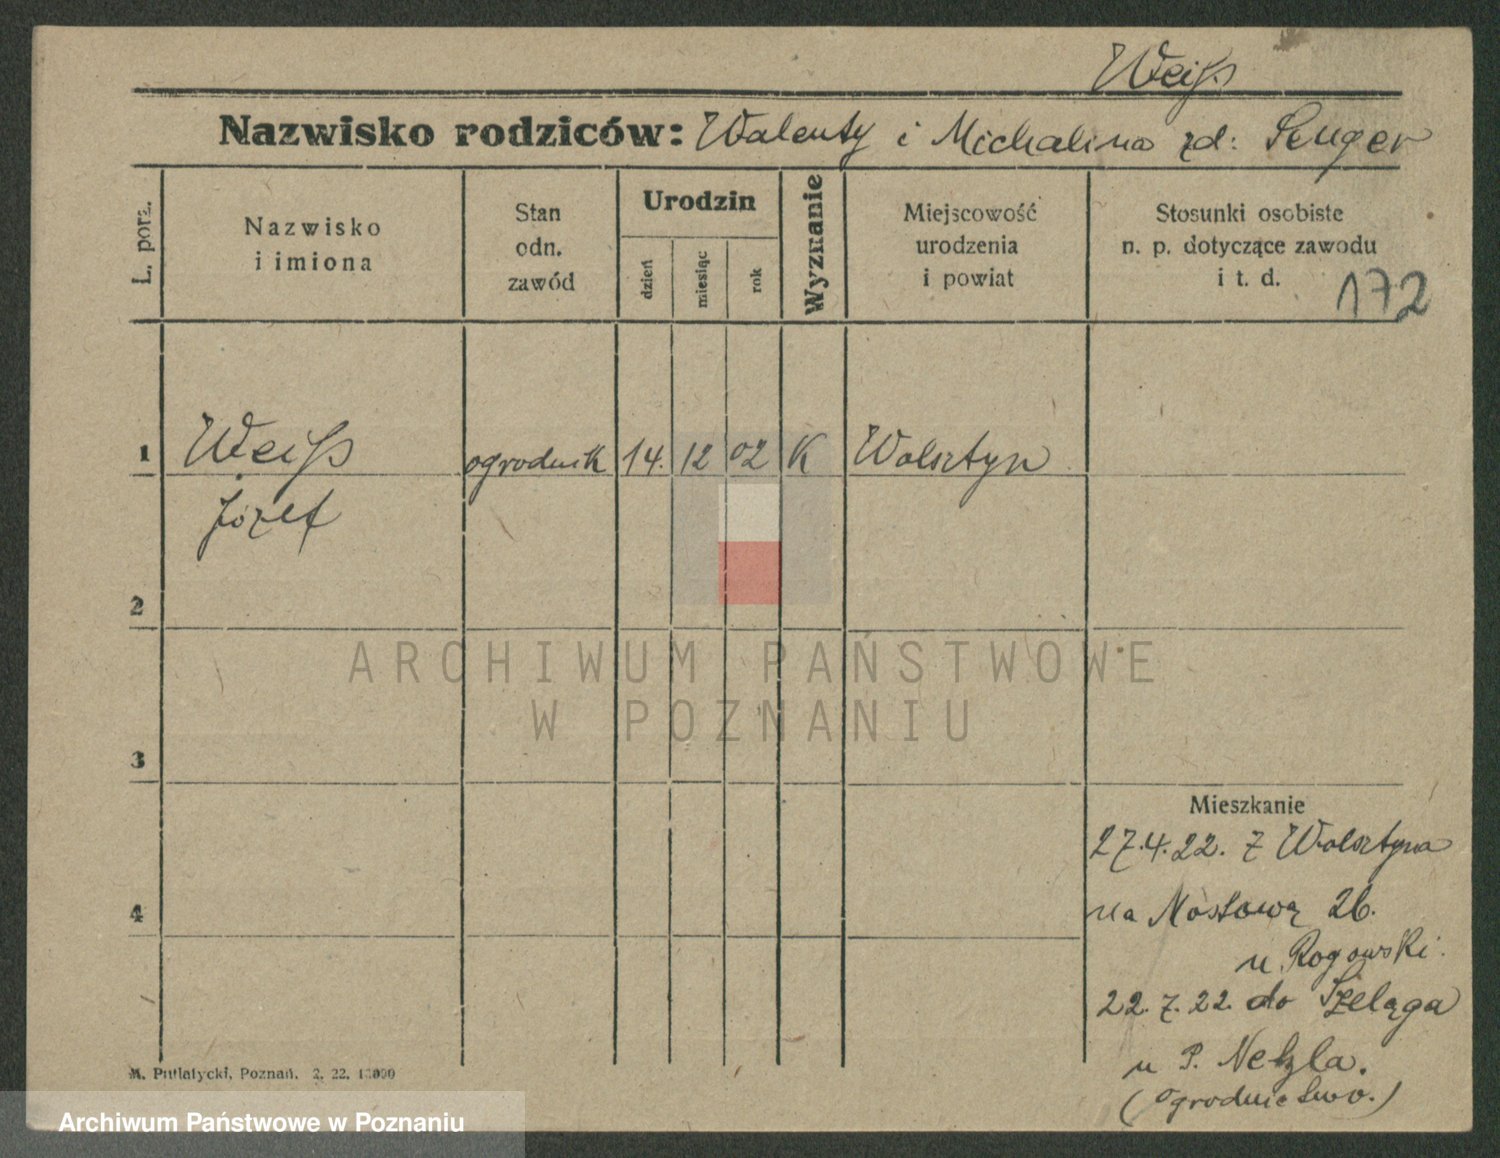 Weiß
Nazwisko rodziców: Walenty i Michalina zd: Senger
L. porz.
Nazwisko
i imiona
Stan
odn.
zawód
Urodzin
dzień
miesiąc
rok
Wyznanie
Miejscowość
urodzenia
i powiat
Stosunki osobiste
n. p. dotyczące zawodu
i t. d.
172
1 Weiß ogrodnik 14. 12 02 K Wolsztyn
Józef
2
3
Mieszkanie
27.4.22. z Wolsztyna
4
na Mostową 26.
u Rogowski.
22.7.22. do Szeląga
u P. Netzla.
(ogrodnictwo.)
M. Putiatycki, Poznań. 2. 22.
ARCHIWUM PAŃSTWOWE
W POZNANIU
Archiwum Państwowe w Poznaniu